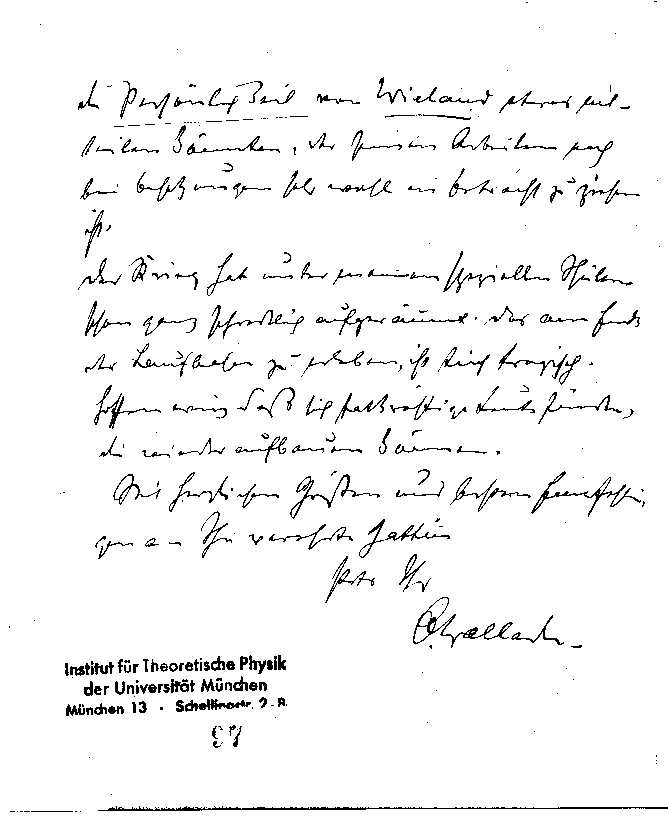 die Persönlichkeit von Wieland etwas mit-
teilen könnten, der seinen Arbeiten nach
bei Besetzungen sehr wohl in Betracht zu ziehen
ist.
Der Krieg hat unter meinen speziellen Schülern
schon ganz schrecklich aufgeräumt. Das am Ende
der Laufbahn zu erleben, ist tragisch.
Hoffen wir, daß sich tatkräftige Leute finden,
die wieder aufbauen können.
Mit herzlichen Grüßen und besten Empfehlun-
gen an Ihre verehrte Gattin
stets Ihr
O. Wallach
Institut für Theoretische Physik
der Universität München
München 13 - Schellingstr. 2-8
97